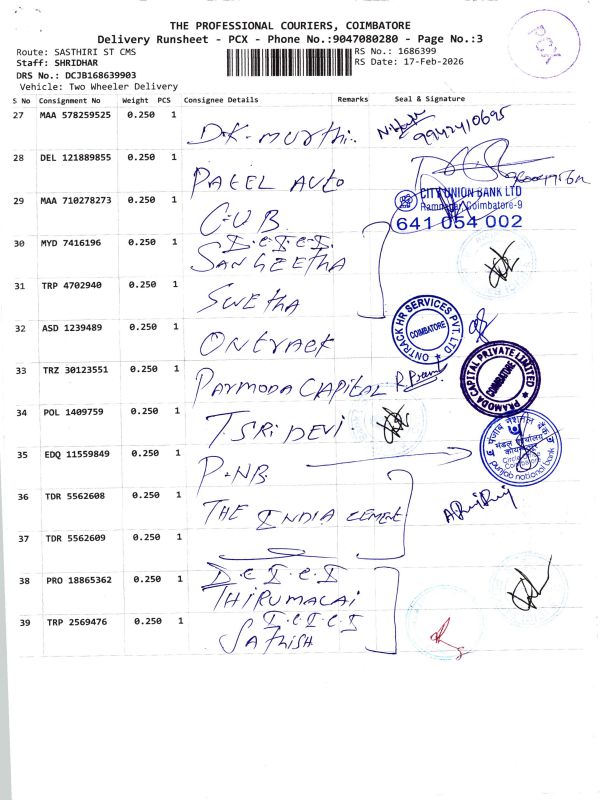 THE PROFESSIONAL COURIERS, COIMBATORE
Delivery Runsheet - PCX - Phone No.:9047080280 - Page No.:3
PCX
Route: SASTHIRI ST CMS
RS No.: 1686399
Staff: SHRIDHAR
RS Date: 17-Feb-2026
DRS No.: DCJB168639903
Vehicle: Two Wheeler Delivery
S No Consignment No Weight PCS Consignee Details Remarks Seal & Signature
27 MAA 578259525 0.250 1 D.K. murthi. 9942410695
28 DEL 121889855 0.250 1 PATEL AUTO
29 MAA 710278273 0.250 1 C-U.B.
CITY UNION BANK LTD
Ramnagar, Coimbatore-9
641 054 002
30 MYD 7416196 0.250 1 I.C.I.C.I.
SANGEETHA
31 TRP 4702940 0.250 1 SWETHA
32 ASD 1239489 0.250 1 ONTRACK
ONTRACK HR SERVICES PVT. LTD
COIMBATORE
33 TRZ 30123551 0.250 1 PARMODA CAPITAL
PRAMODA CAPITAL PRIVATE LIMITED
COIMBATORE
34 POL 1409759 0.250 1 T SRI DEVI.
35 EDQ 11559849 0.250 1 P-NB.
पंजाब नैशनल बैंक
मंडल कार्यालय
कोयम्बत्तूर
Circle Office
Coimbatore
punjab national bank
36 TDR 5562608 0.250 1 THE INDIA CEMENT
37 TDR 5562609 0.250 1
38 PRO 18865362 0.250 1 I.C.I.C.I
THIRUMALAI
39 TRP 2569476 0.250 1 I.C.I.C.I
SATHISH